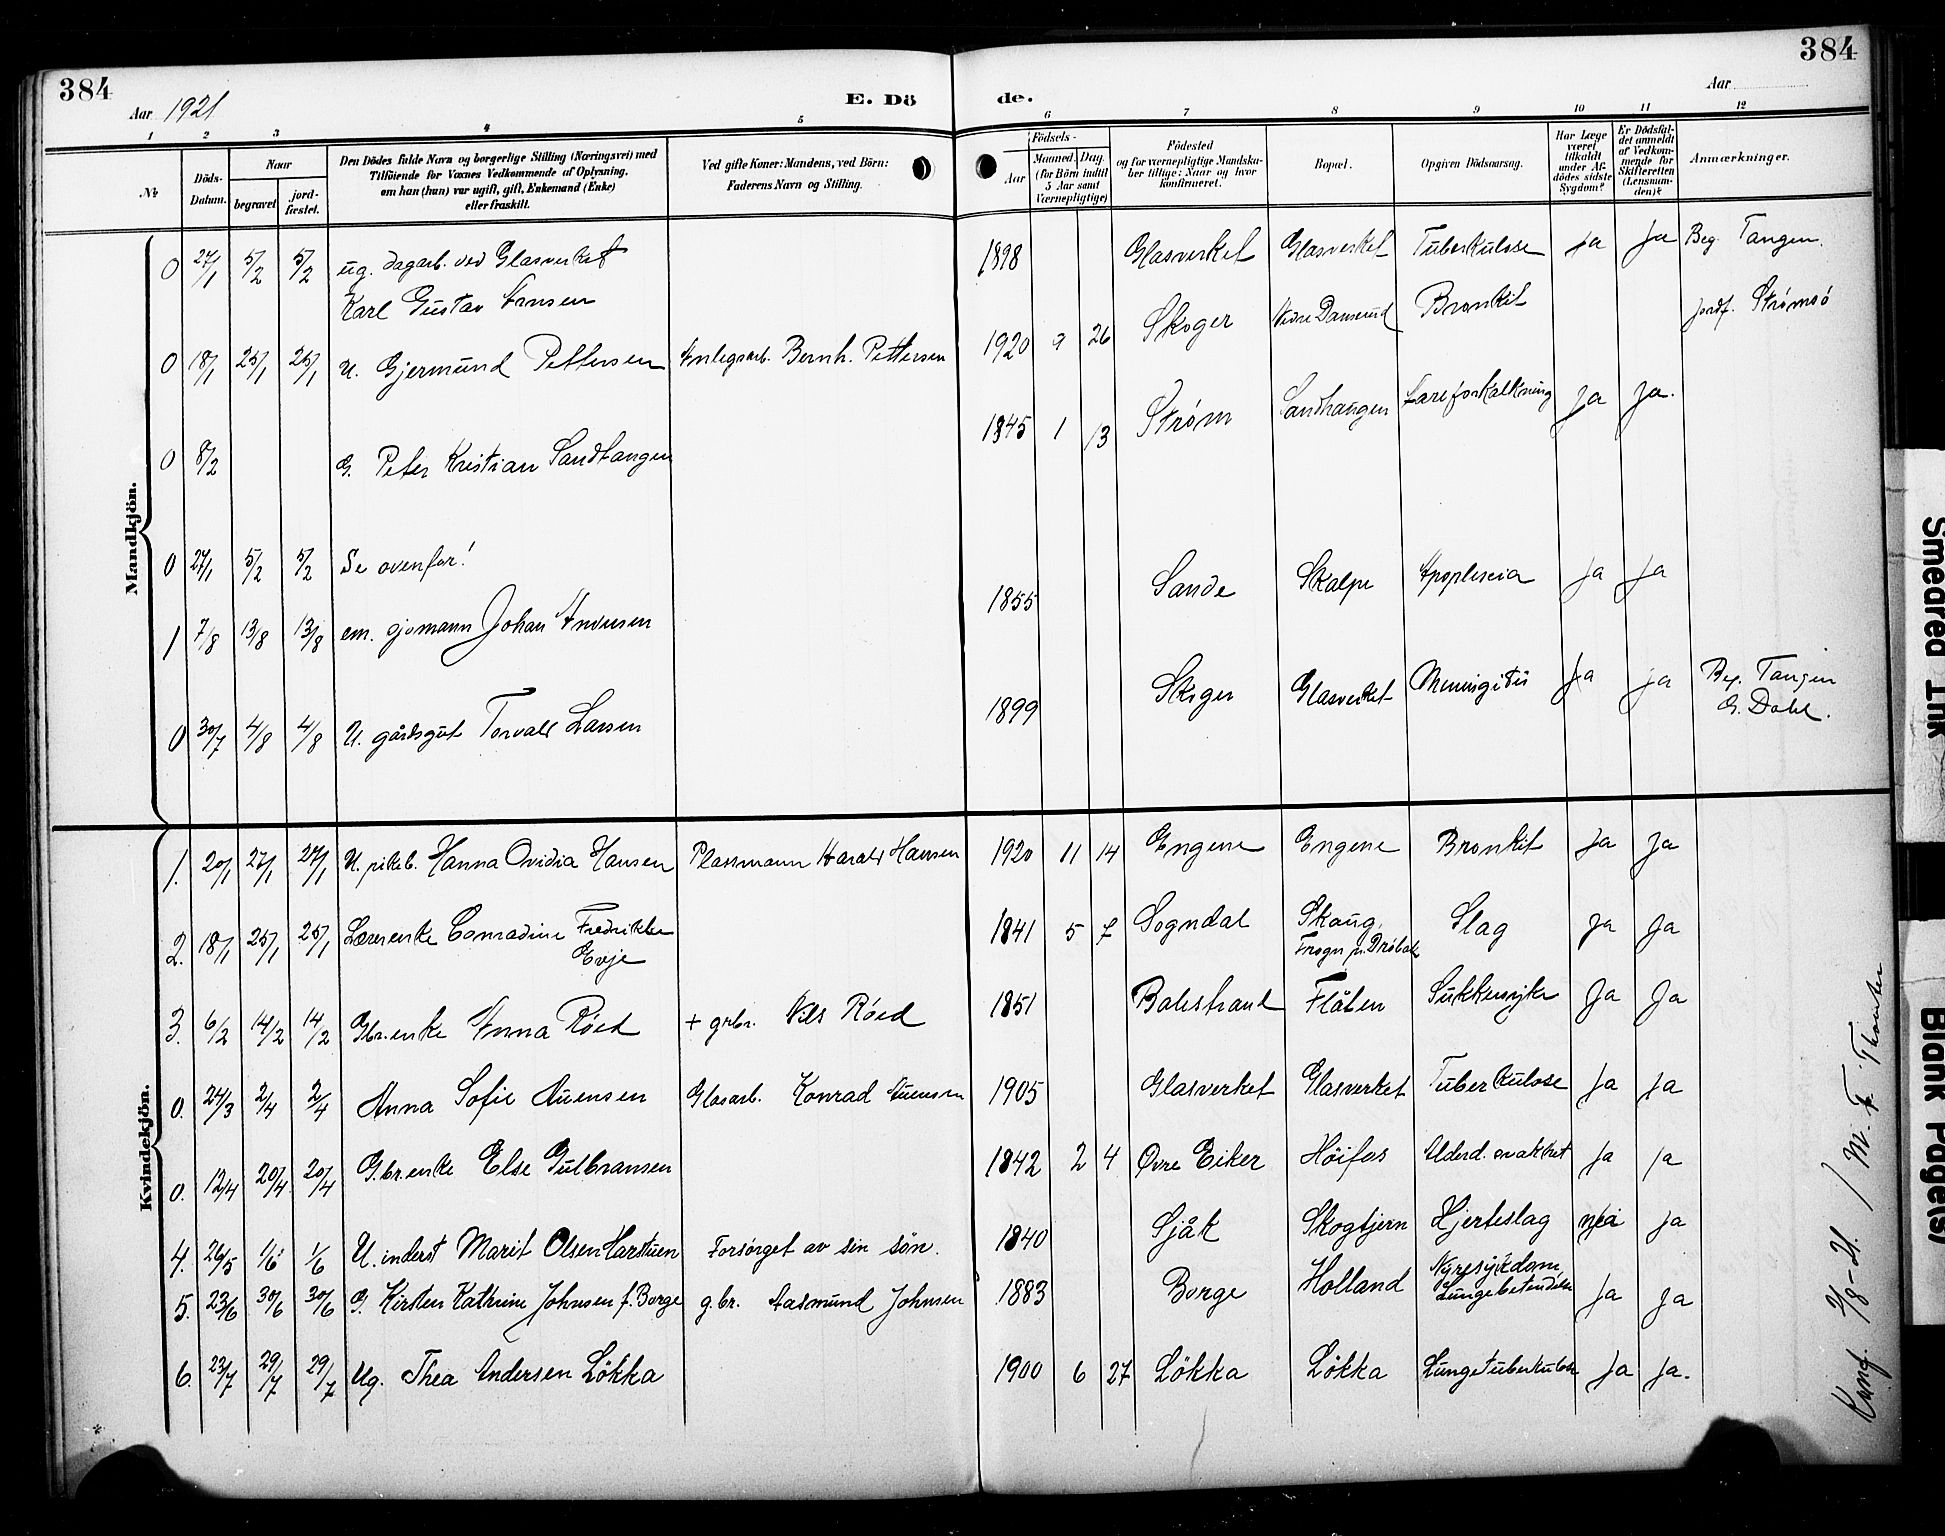 384
384
Aar 1921
E. Dö
de.
Aar
1 2 3 4 5 6 7 8 9 10 11 12
№
Döds-Datum.
Naar
begravet
jord-fæstet.
Den Dödes fulde Navn og borgerlige Stilling (Næringsvei) med
Tilföiende for Voxnes Vedkommende af Oplysning,
om han (hun) var ugift, gift, Enkemand (Enke)
eller fraskilt.
Ved gifte Koner: Mandens, ved Börn:
Faderens Navn og Stilling.
Födsels-
Aar
Maaned. Dag.
(for Börn indtil
5 Aar samt
Værnepligtige)
Födested
og for værnepligtige Mandska-
ber tillige: Naar og hvor
konfirmeret.
Bopæl.
Opgiven Dödsaarsag.
Har Læge
været
tilkaldt
under Af-
dödes sidste
Sygdom?
Er Dödsfal-
det anmeldt
af Vedkom-
mende for
Skifteretten
(Lensman-
den)?
Anmærkninger.
Mandkjön.
0 27/1 5/2 5/2 ug. dagarb. ved Glasverket 1898 Glasverket Glasverket Tuberkulose ja ja Beg. Tangen.
Karl Gustav Hansen
0 18/1 25/1 25/1 U. Gjermund Pettersen Anlegsarb. Bernh. Pettersen 1920 9 26 Skoger Nedre Bronkit jordf. Strømsö
0 8/2 G. Peter Kristian Sandtangen 1845 1 13 Strøm Sandtangen Åreforkalkning ja ja.
0 27/1 5/2 5/2 Se ovenfor!
1 7/8 13/8 13/8 em. sjømann Johan 1855 Sande Skalpe Apoplexia ja ja
0 30/7 4/8 4/8 U. gårdsgut Torvald Larsen 1899 Skoger Glasverket Meningitis ja ja Beg. Tangen
G. Dahl.
Kvindekjön.
1. 20/1 27/1 27/1 U. pikeb. Hanna Ovidia Hansen Plassmann Harald Hansen 1920 11 14 Engene Engene Bronkit ja ja
2. 18/1 25/1 25/1 Lærerenke Conradine Fredrikke
Evje 1841 5 7 Sogndal Skaug,
Frogn pr. Drøbak Slag ja ja
3. 6/2 14/2 14/2 Gbr.enke Anna Röed + grbr. Nils Röed 1851 Balestrand Flåten Sukkersyke ja ja
0. 24/3 2/4 2/4 Anna Sofie Auensen Glasarb. Konrad Auensen 1905 Glasverket Glasverket Tuberkulose ja ja
0. 12/4 20/4 20/4 Gbr.enke Else Gulbransen 1842 2 4 Øvre Eiker Höifos Alderd. svakhet ja ja
4. 26/5 1/6 1/6 U. inderst Marit Olsen Harstuen Forsörget av sin sön. 1840 Sjåk Skogtjern Hjerteslag nei ja
5. 23/6 30/6 30/6 G. Kirsten Kathrine Johnsen f. Borge g.br. Aasmund Johnsen 1883 Borge Holland Nyresykdom,
Lungebetendelse ja ja
6. 23/7 29/7 29/7 Ug. Thea Andersen Lökka 1900 6 27 Lökka Lökka Lungetuberkulose ja ja.
Konf. 2/8-21. / M. F.
Smeared Ink
Blank Page(s)